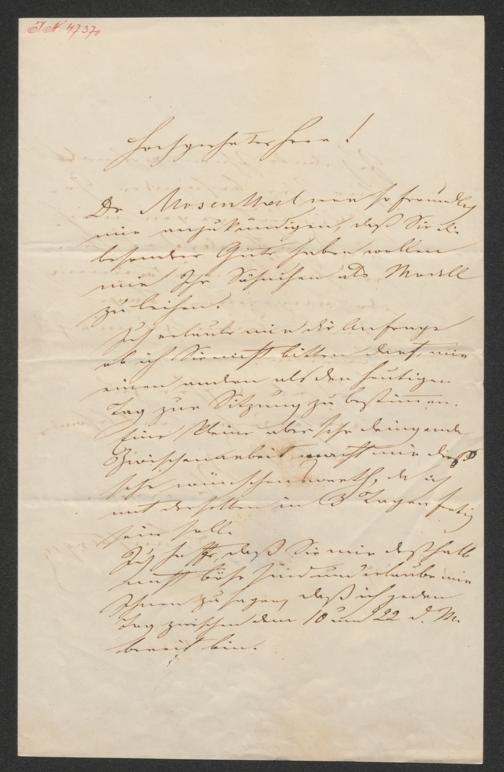 I.N. 47370
Hochgeehrter Herr!
Dr Mosenthal war so freundlich
mir anzukündigen, daß Sie die
besondere Güte haben wollen
mir Ihr Söhnchen als Modell
zu leihen.
Ich erlaube mir die Anfrage
ob ich Sie nicht bitten darf, mir
einen andern als den heutigen
Tag zur Sitzung zu bestimmen.
Eine kleine aber sehr dringende
Zwischenarbeit macht mir dieß
sehr wünschenswerth, da ich
mit derselben in 3 Tagen fertig
sein soll.
Ich hoffe, daß Sie mir deßhalb
nicht böse sind und erlaube mir
Ihnen zu sagen, daß ich jeden
Tag zwischen dem 18 und 22 d. M.
bereit bin.